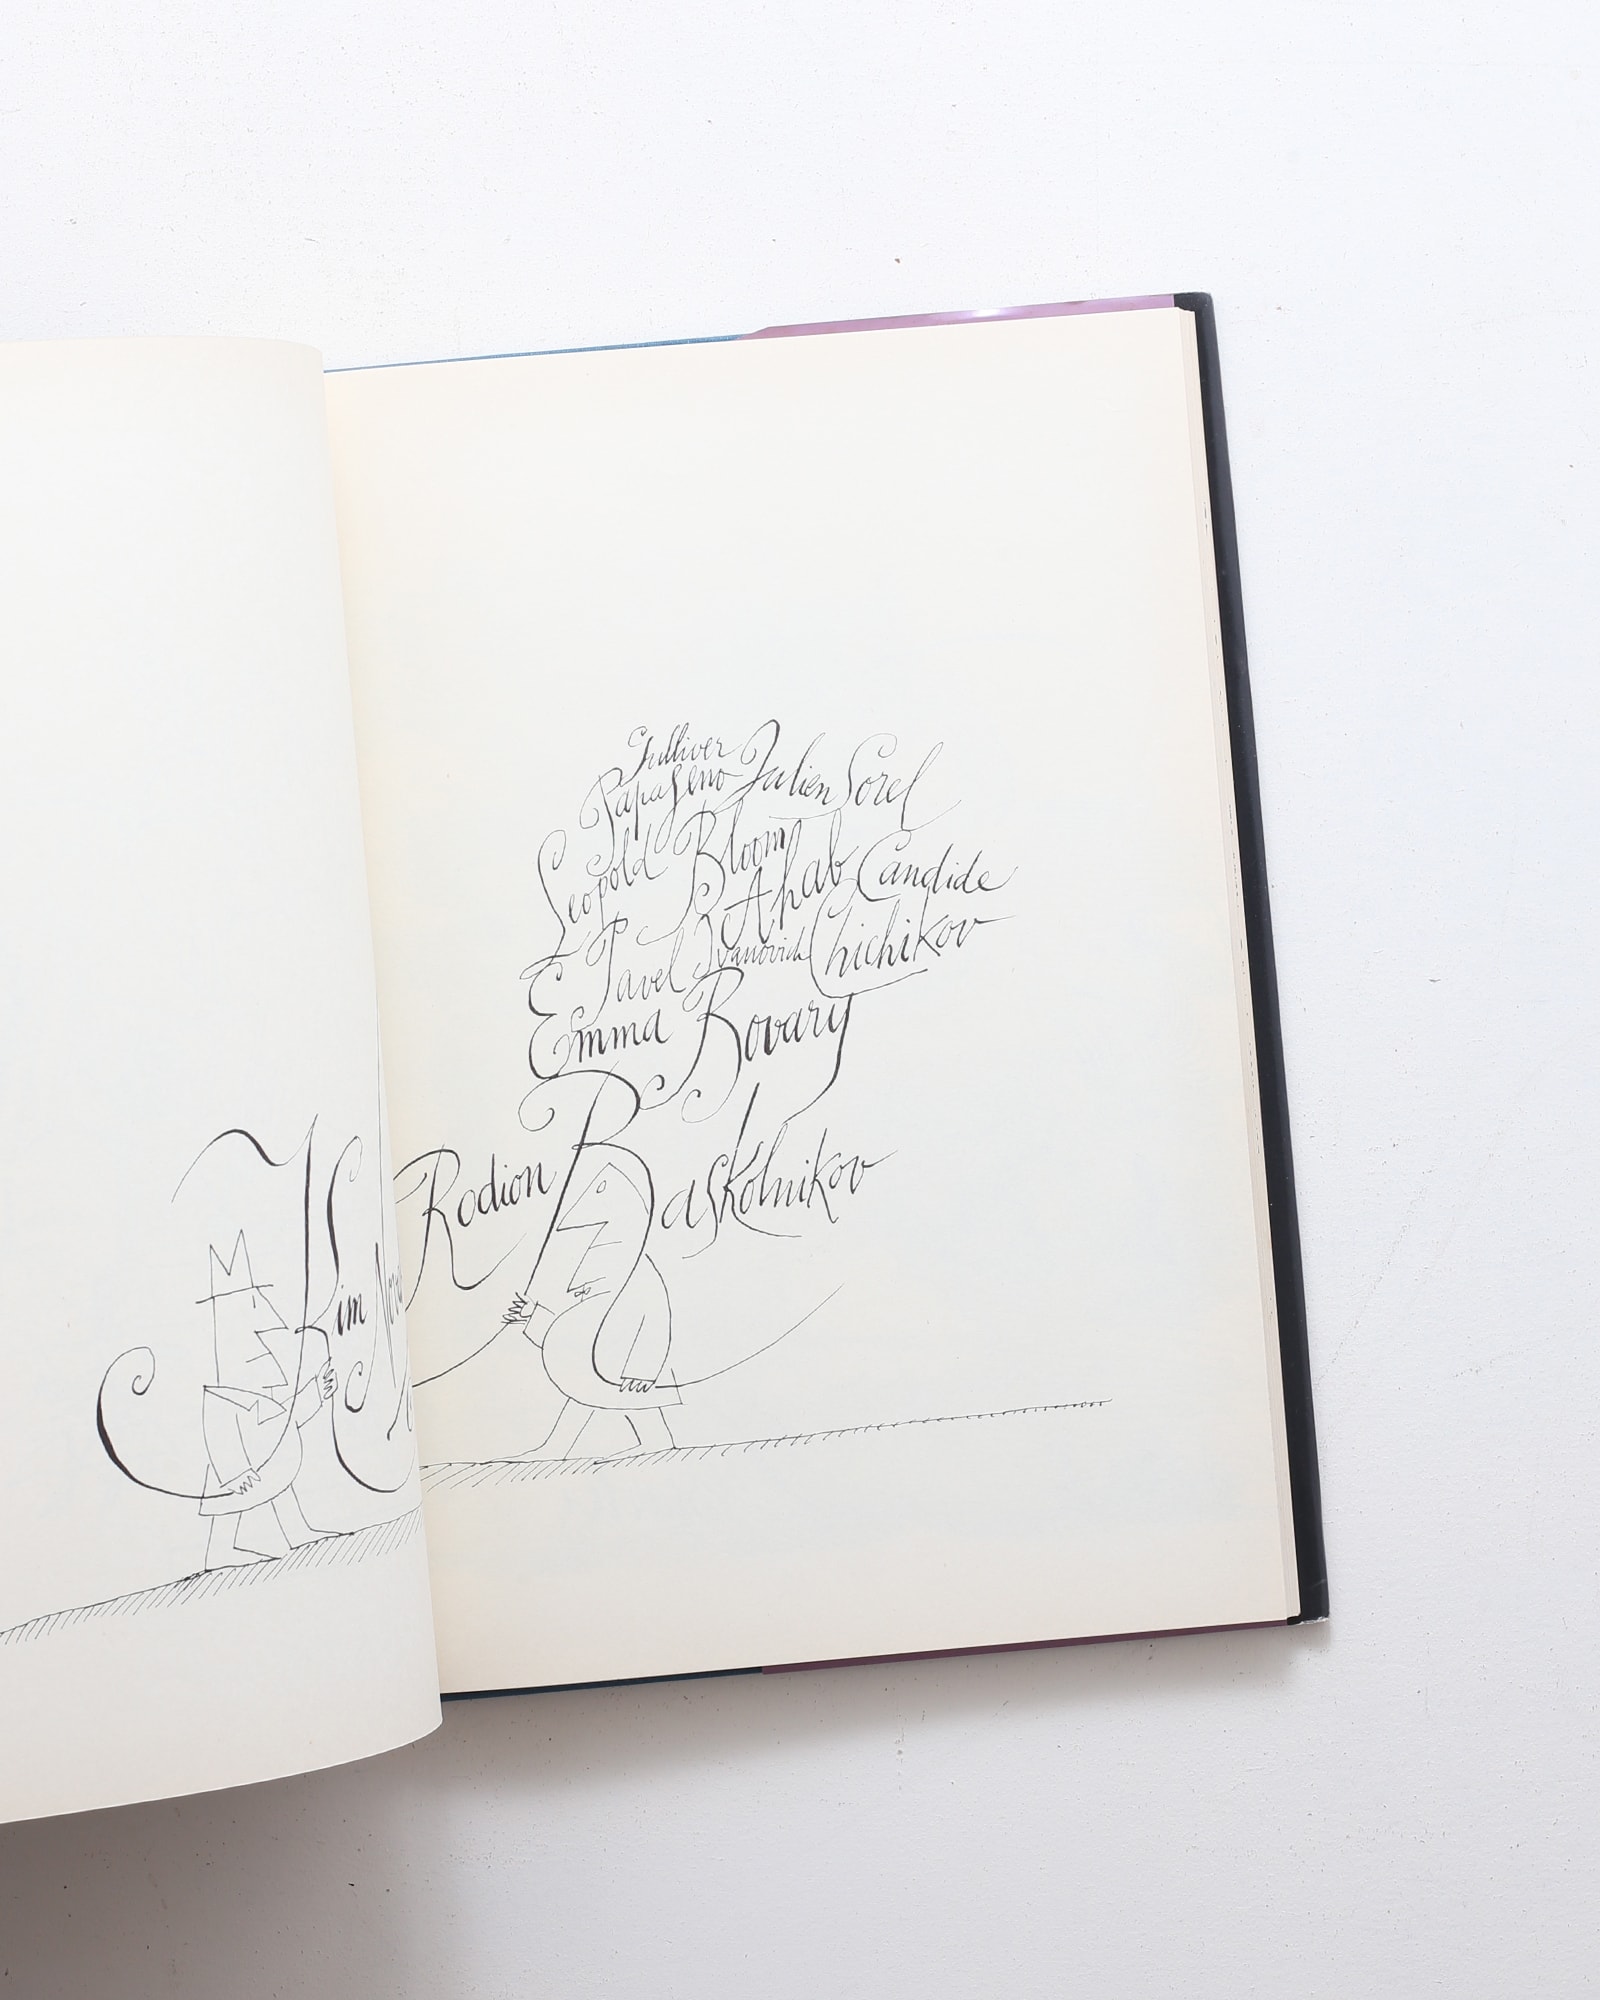 Kim
Gulliver
Papageno Julien Sorel
Leopold Bloom
Ahab Candide
Pavel Ivanovich Chichikov
Emma Bovary
Rodion Raskolnikov